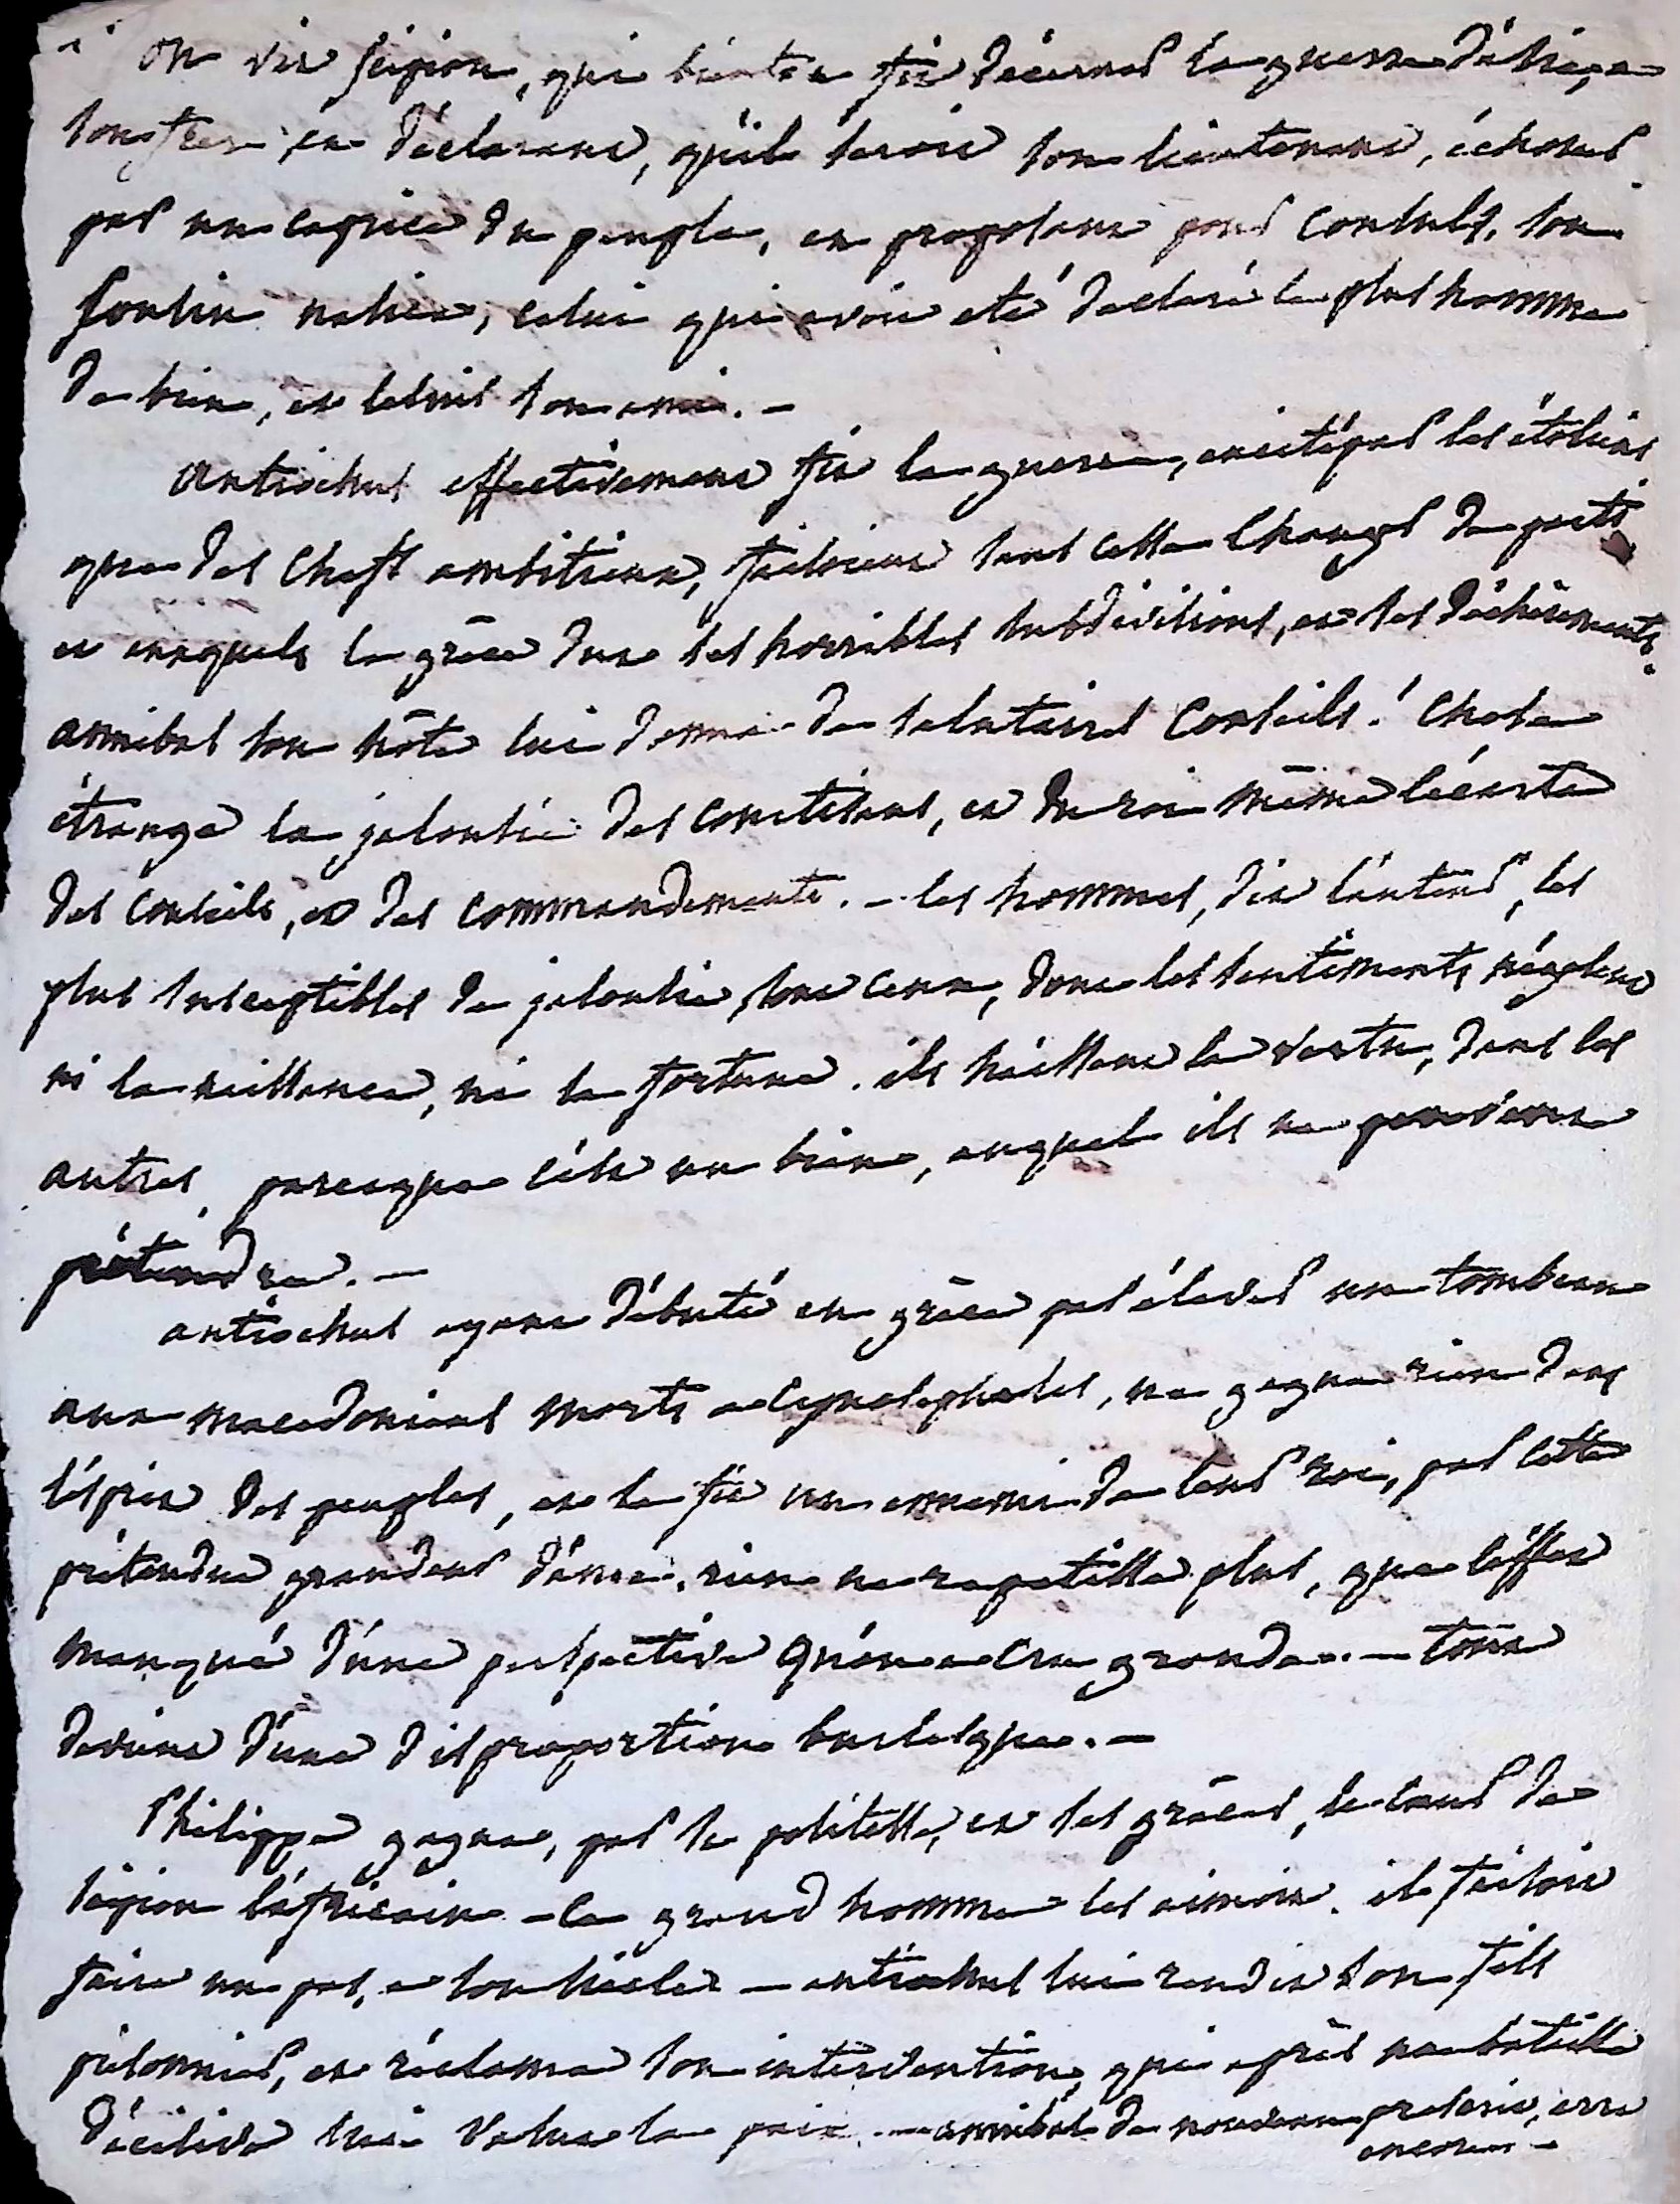 on vit scipion, qui bientot fit décerner la guerre d'asie, a
son frere en déclarant, qu'il seroit son lieutenant, échouer
par un caprice du peuple, en proposant pour consul, son
cousin nasica, celui qui avoit eté declaré le plus homme
de bien, et lelius son ami. -
antiochus effectivement fit la guerre, excité par les étoliens
que des chefs ambitieux, faisoient sans cesse changer de parti
et auxquels la grèce dut ses horribles subdivisions, et ses déchirements.
annibal son hôte lui donna de salutaires conseils! chose
étrange la jalousie des courtisans, et du roi même l'écarta
des conseils, et des commandements. - les hommes, dit l'auteur, les
plus susceptibles de jalousie, sont ceux, dont les sentiments n'égalent
ni la naissance, ni la fortune. ils haïssent la vertu, dans les
autres, parceque c'est un bien, auquel ils ne peuvent
prétendre. -
antiochus ayant débuté en grèce par élever un tombeau
aux macedoniens morts a cynoscephales, ne gagna rien dans
l'esprit des peuples, et se fit un ennemi de leur roi, par cette
prétendue grandeur d'âme. rien ne rapetisse plus, que l'effet
manqué d'une perspective qu'on a cru grande. - tout
devient d'une disproportion burlesque. -
Philippe gagna, par sa politesse, et ses grâces, le cœur de
scipion l'africain - ce grand homme les aimoit. il faisoit
faire un pas, a son siècle - antiochus lui rendit son fils
prisonnier, et réclama son intervention, qui après une bataille
décisive lui valut la paix. - annibal de nouveau proscrit, erra
encore. -